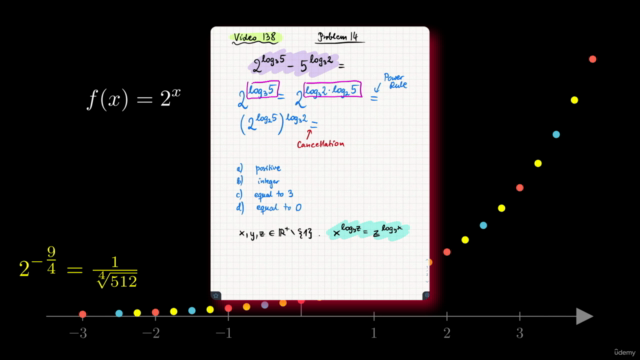 Video 138 Problem 14
2^{log_3 5} - 5^{log_3 2} =
f(x) = 2^x
2^{log_3 5} = 2^{log_3 2 · log_2 5} = Power Rule
(2^{log_2 5})^{log_3 2} =
Cancellation
a) positive
b) integer
c) equal to 3
d) equal to 0
x, y, z ∈ ℝ⁺ \ {1}. x^{log_y z} = z^{log_y x}
2^{-9/4} = 1/\sqrt[4]{512}
−3 −2 −1 1 2 3
ûdemy